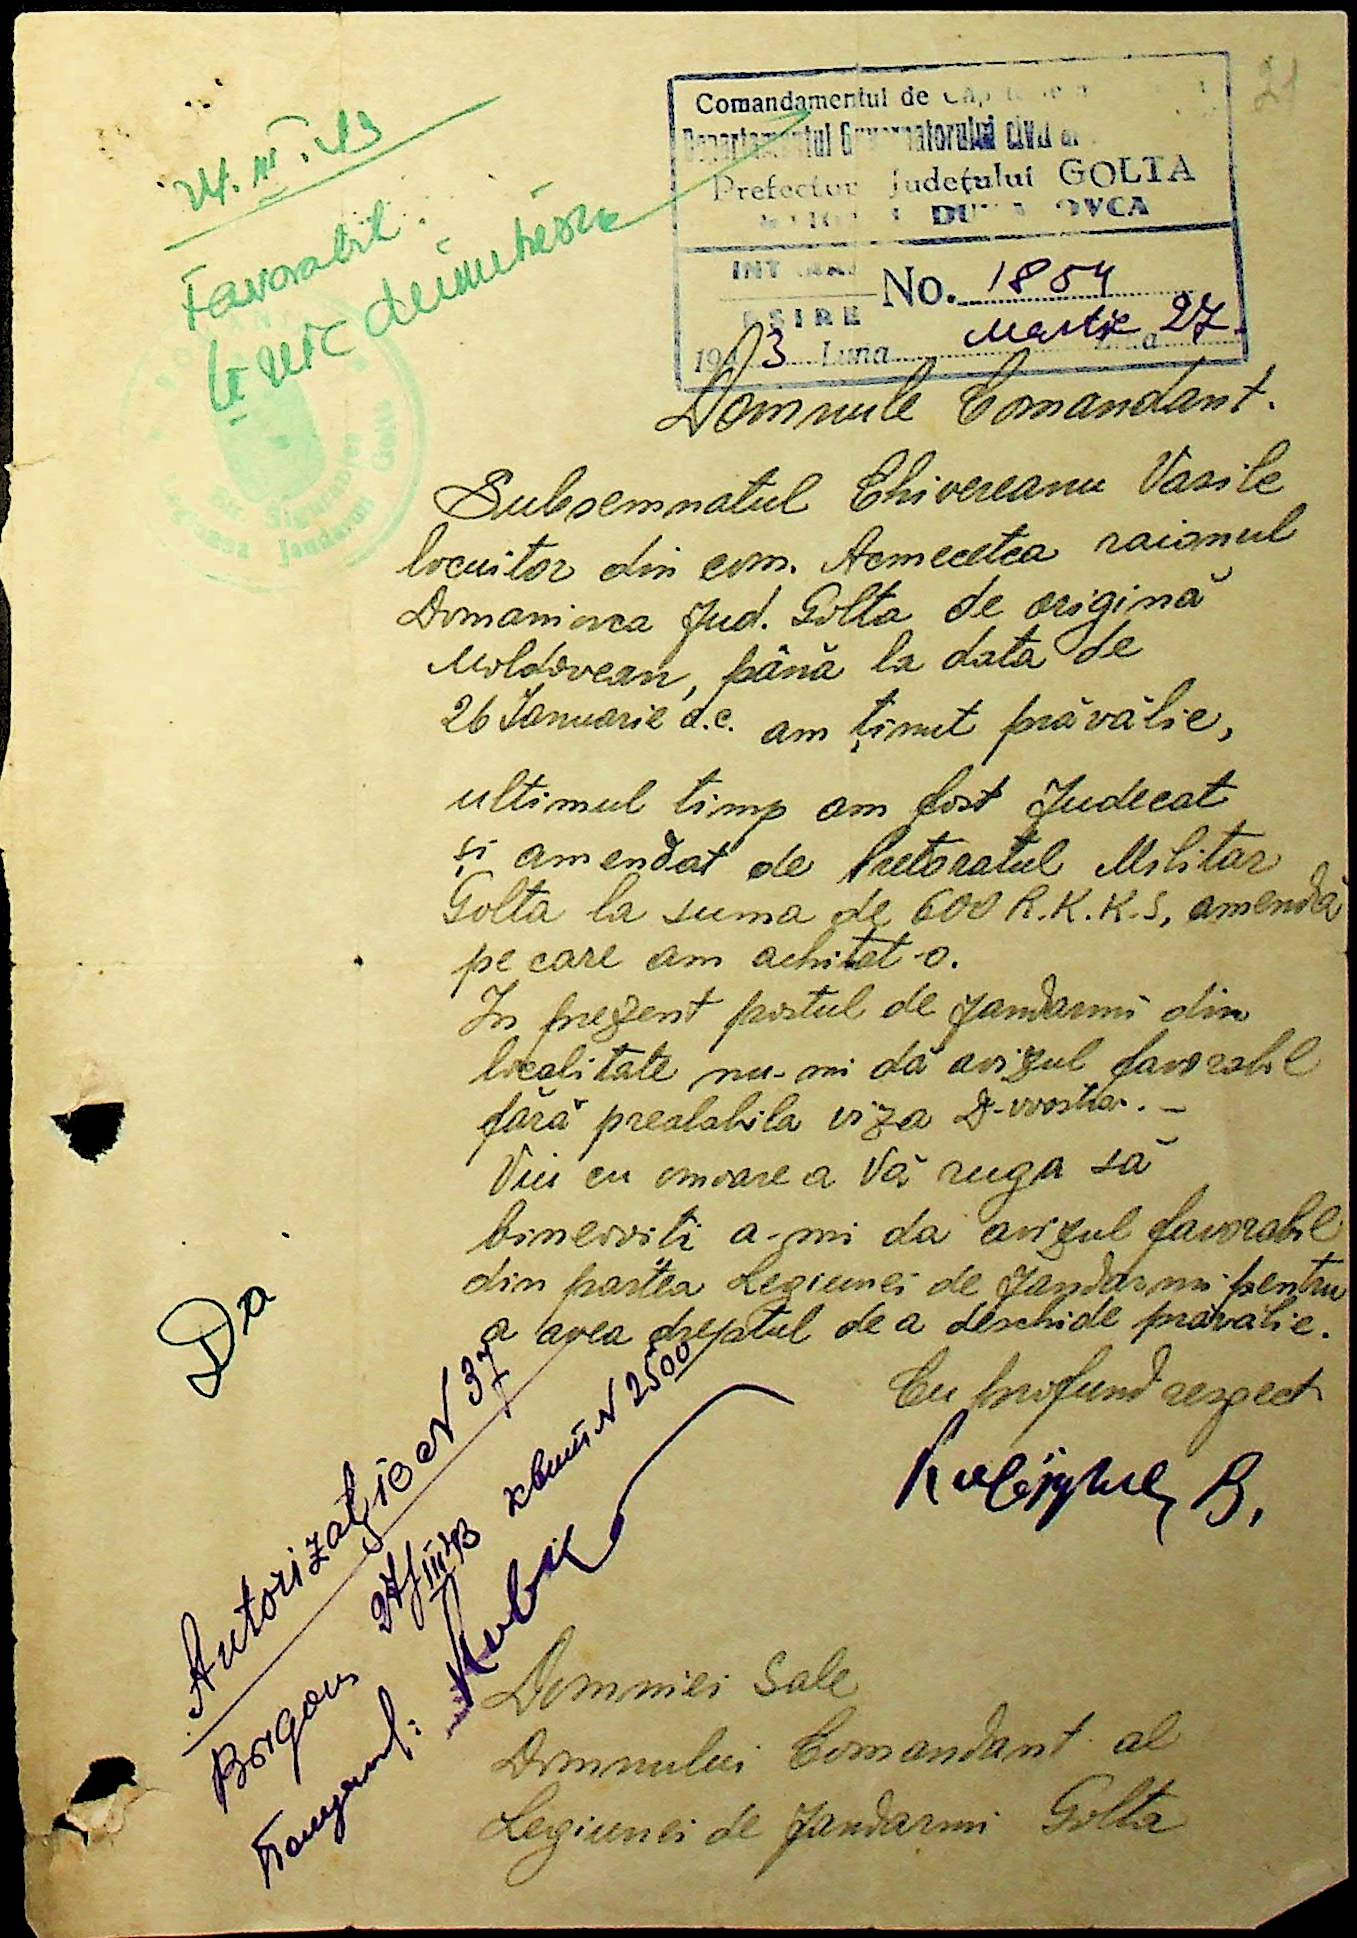 21
24.III.43
Favorabil.
Comandamentul de
Departamentul Guvernatorului civil al
Prefectur Județului GOLTA
No. 1854
EȘIRE
1943 Luna Martie Ziua 27
Domnule Comandant.
Subsemnatul Chivereanu Vasile
locuitor din com. Acmecetca raionul
Domaniovca Jud. Golta de origină
Moldovean, până la data de
26 Ianuarie a.c. am ținut prăvălie,
ultimul timp am fost Judecat
și amendat de Pretoratul Militar
Golta la suma de 600 R.K.K.S, amendă
pe care am achitat-o.
In prezent postul de Jandarmi din
localitate nu-mi dă avizul favorabil
fără prealabila viza D-voastra. –
Viu cu onoare a Vă ruga să
binevoiti a-mi da avizul favorabil
din partea Legiunei de Jandarmi pentru
a avea dreptul de a deschide prăvălie.
Cu profund respect
B.
Da
Autorizatie N 37
27/III 43 N 2500
Domniei Sale
Domnului Comandant al
Legiunei de Jandarmi Golta